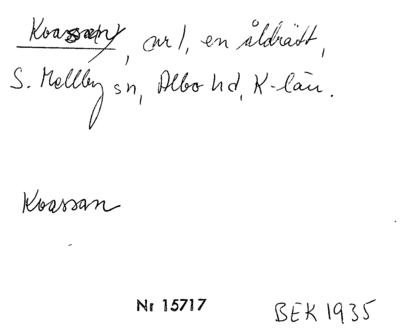 Koassan, arl, en åldrätt,
S. Mellby sn, Albo hd, K-län.
Koassan
Nr 15717
BEK 1935